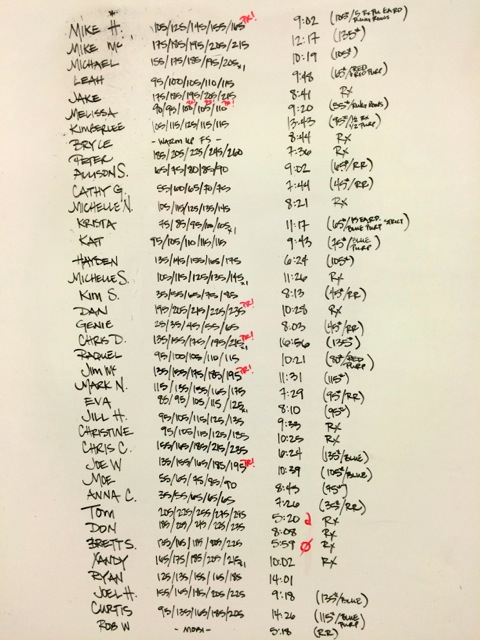 MIKE H. 105/125/145/155/165 PR! 9:02 (105#/
MIKE Mc 175/185/195/205/215 12:17 (135#)
MICHAEL 155/175/185/195/205x1 10:19 (105#)
LEAH 95/100/105/110/115 9:48 (65#/RED
JAKE 175/185/195/205/215 8:41 Rx
MELISSA 90/95/100/105/110 9:20 (55#/RING ROWS)
KIMBERLEE 105/115/125/115/115 13:43 (95#/
BRYCE - WARM UP FS - 8:44 Rx
PETER 185/205/225/245/260 7:36 Rx
ALLISON S. 65/75/80/85/90 9:02 (65#/RR)
CATHY G. 55/60/65/70/75 7:44 (45#/RR)
MICHELLE N. 105/115/125/135/145 8:21 Rx
KRISTA 75/85/95/100/105x1 11:17 (65#/
KAT 95/105/110/115/115 9:43 (75#/BLUE PURP)
HAYDEN 135/145/155/165/175 6:24 (105#)
MICHELLE S. 105/115/125/135/145x1 11:26 Rx
KIM S. 35/55/65/75/85 8:13 (45#/RR)
DAN 195/205/215/225/235 PR! 10:28 Rx
GENIE 25/35/45/55/65 8:03 (45#/RR)
CHRIS D. 135/155/175/195/215 PR! 16:56 (135#)
RAQUEL 95/100/105/110/115 10:21 (80#/RED PURP)
JIM Mc 135/155/175/185/195 PR! 11:31 (115#)
MARK N. 115/135/155/165/175 7:29 (95#/RR)
EVA 85/95/105/115/125x1 8:10 (95#)
JILL H. 95/105/115/125/135 9:33 Rx
CHRISTINE 95/105/115/125/135 10:25 Rx
CHRIS C. 155/165/185/215/235 6:24 (135#/BLUE)
JOE W 135/155/165/185/195 PR! 10:39 (105#/BLUE)
MOE 55/65/75/85/90 8:43 (95#)
ANNA C. 35/55/65/65/65 7:26 (35#/RR)
TOM 205/225/255/275/295 5:20 Rx
DON 185/205/215/225/235 8:08 Rx
BRETT S. 5:59 Rx
XANDY 165/175/185/205/215x1 10:02 Rx
RYAN 125/135/155/165/185 14:01
JOEL H. 155/165/185/205/225 9:18 (135#/BLUE)
CURTIS 95/135/165/185/205 14:26 (115#/BLUE PURP)
ROB W - MOBI - 5:18 (RR)